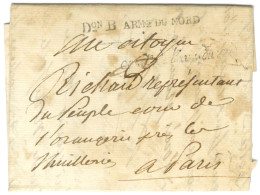 Don B ARMÉE DU NORD
au citoyen
Richard représentant
du peuple cour de
l'orangerie près les
Thuilleries
a Paris